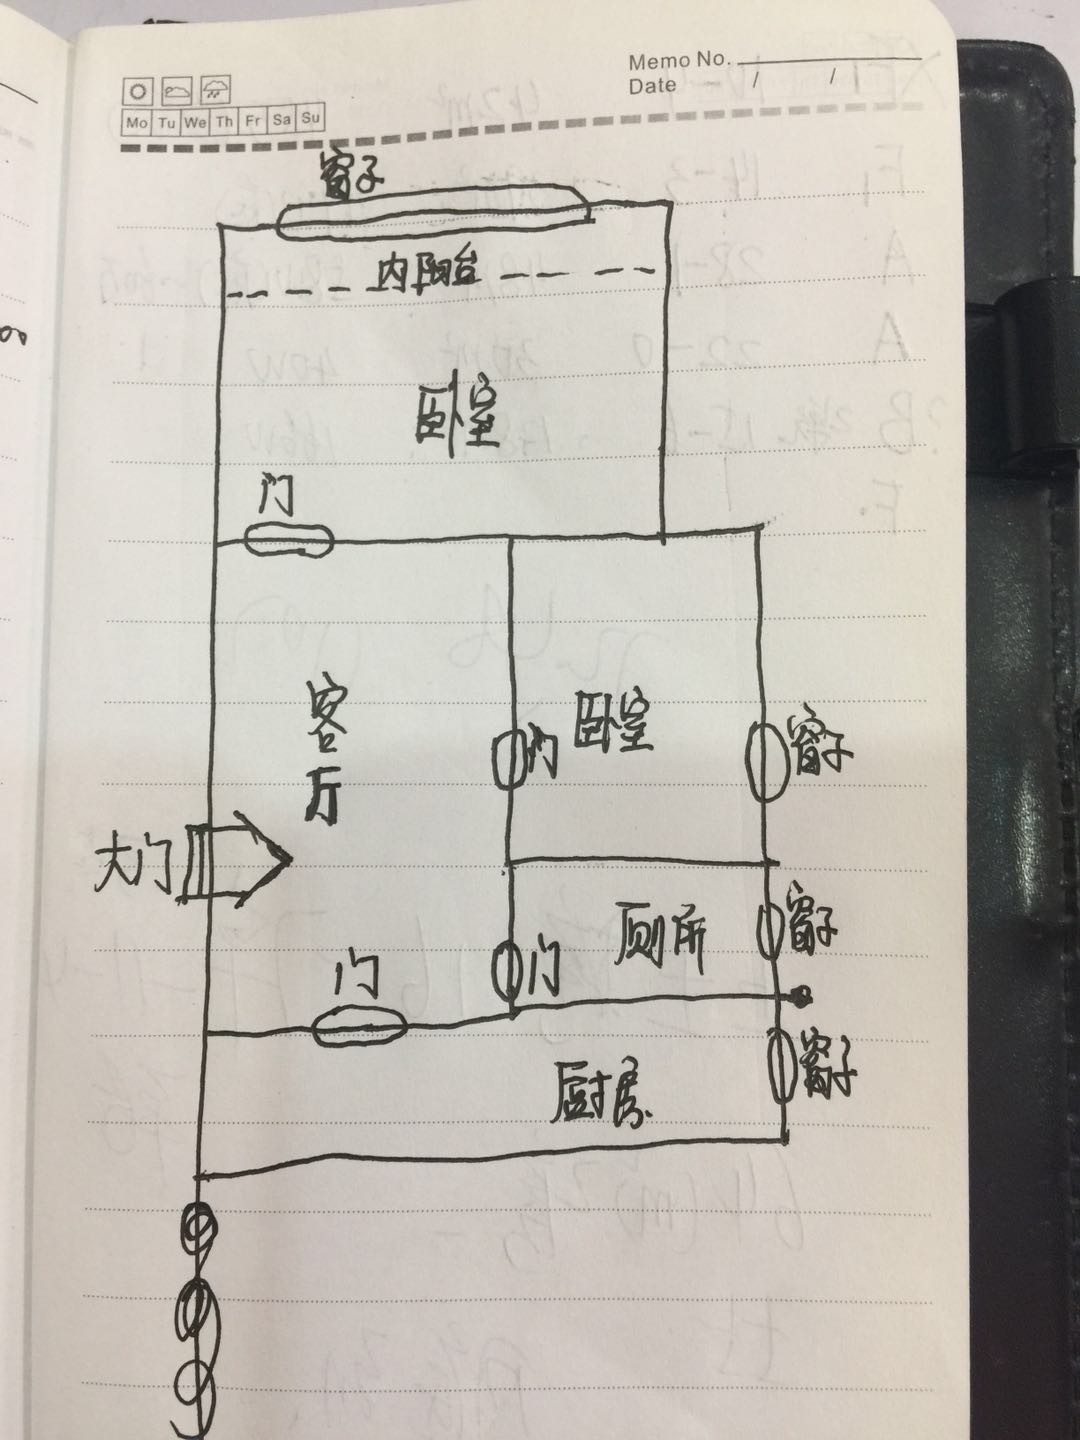 Memo No.
Date / /
Mo Tu We Th Fr Sa Su
窗子
内阳台
卧室
门
客厅
卧室
门
窗子
大门
厕所
窗子
门
门
厨房
窗子